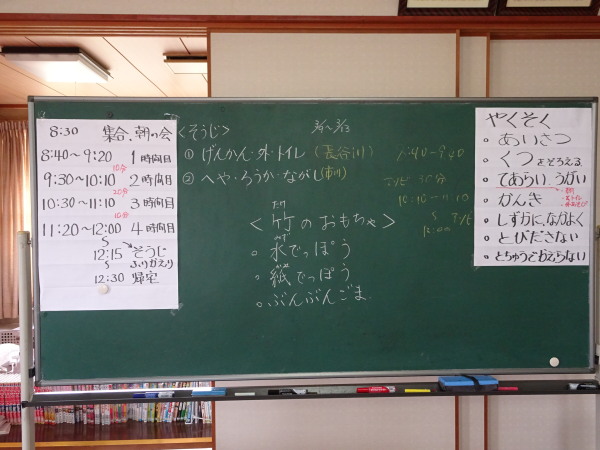 8:30 集合、朝の会
8:40～9:20 1時間目
10分
9:30～10:10 2時間目
20分
10:30～11:10 3時間目
10分
11:20～12:00 4時間目
12:15 そうじ
ふりかえり
12:30 帰宅
<そうじ>
① げんかん・外・トイレ (長谷川)
② へや・ろうか・ながし (市川)
<竹のおもちゃ>
たけ
・水でっぽう
みず
・紙でっぽう
かみ
・ぶんぶんごま
10:10～11:10
12:00
やくそく
・あいさつ
・くつをそろえる
・てあらい、うがい
・かんき
・しずかに、なかよく
・とびださない
・とちゅうでかえらない